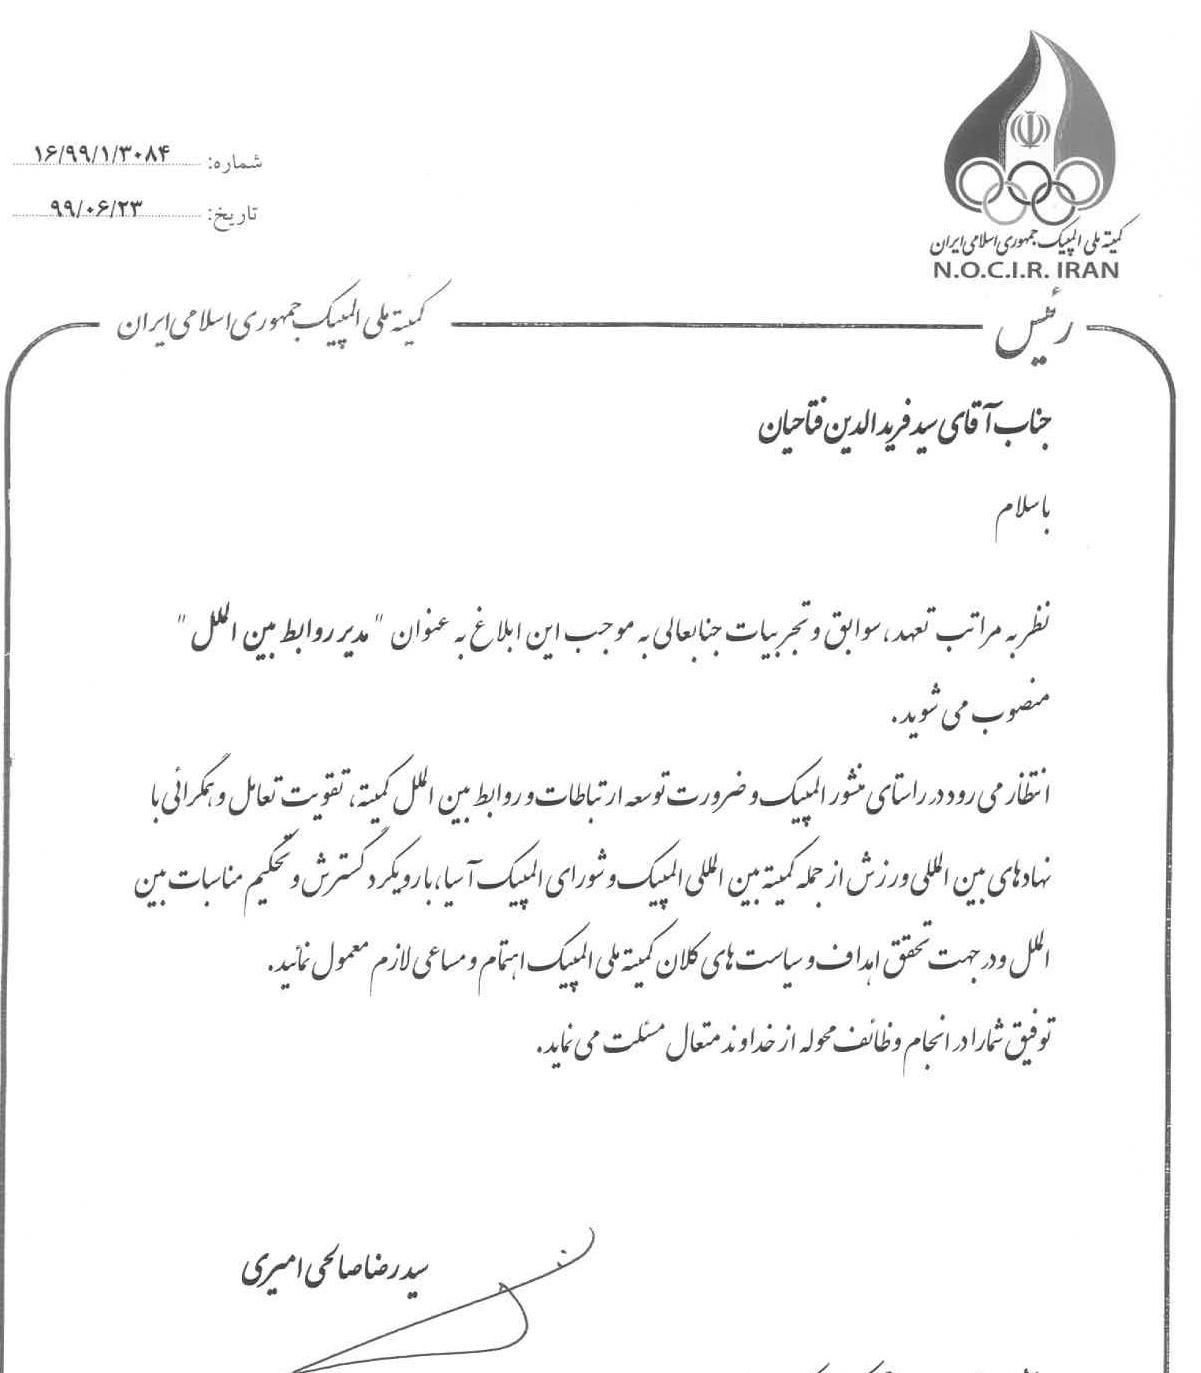 کمیته ملی المپیک جمهوری اسلامی ایران
N.O.C.I.R. IRAN
شماره: ۱۶/۹۹/۱/۳۰۸۴
تاریخ: ۹۹/۰۶/۲۳
رئیس
کمیته ملی المپیک جمهوری اسلامی ایران
جناب آقای سید فرید الدین فتاحیان
با سلام
نظر به مراتب تعهد، سوابق و تجربیات جنابعالی به موجب این ابلاغ به عنوان "مدیر روابط بین الملل"
منصوب می شوید.
انتظار می رود در راستای منشور المپیک و ضرورت توسعه ارتباطات و روابط بین الملل کمیته، تقویت تعامل و همگرائی با
نهادهای بین المللی ورزش از جمله کمیته بین المللی المپیک و شورای المپیک آسیا، با رویکرد گسترش و تحکیم مناسبات بین
الملل و در جهت تحقق اهداف و سیاست های کلان کمیته ملی المپیک اهتمام و مساعی لازم معمول نمائید.
توفیق شما را در انجام وظائف محوله از خداوند متعال مسئلت می نماید.
سید رضا صالحی امیری